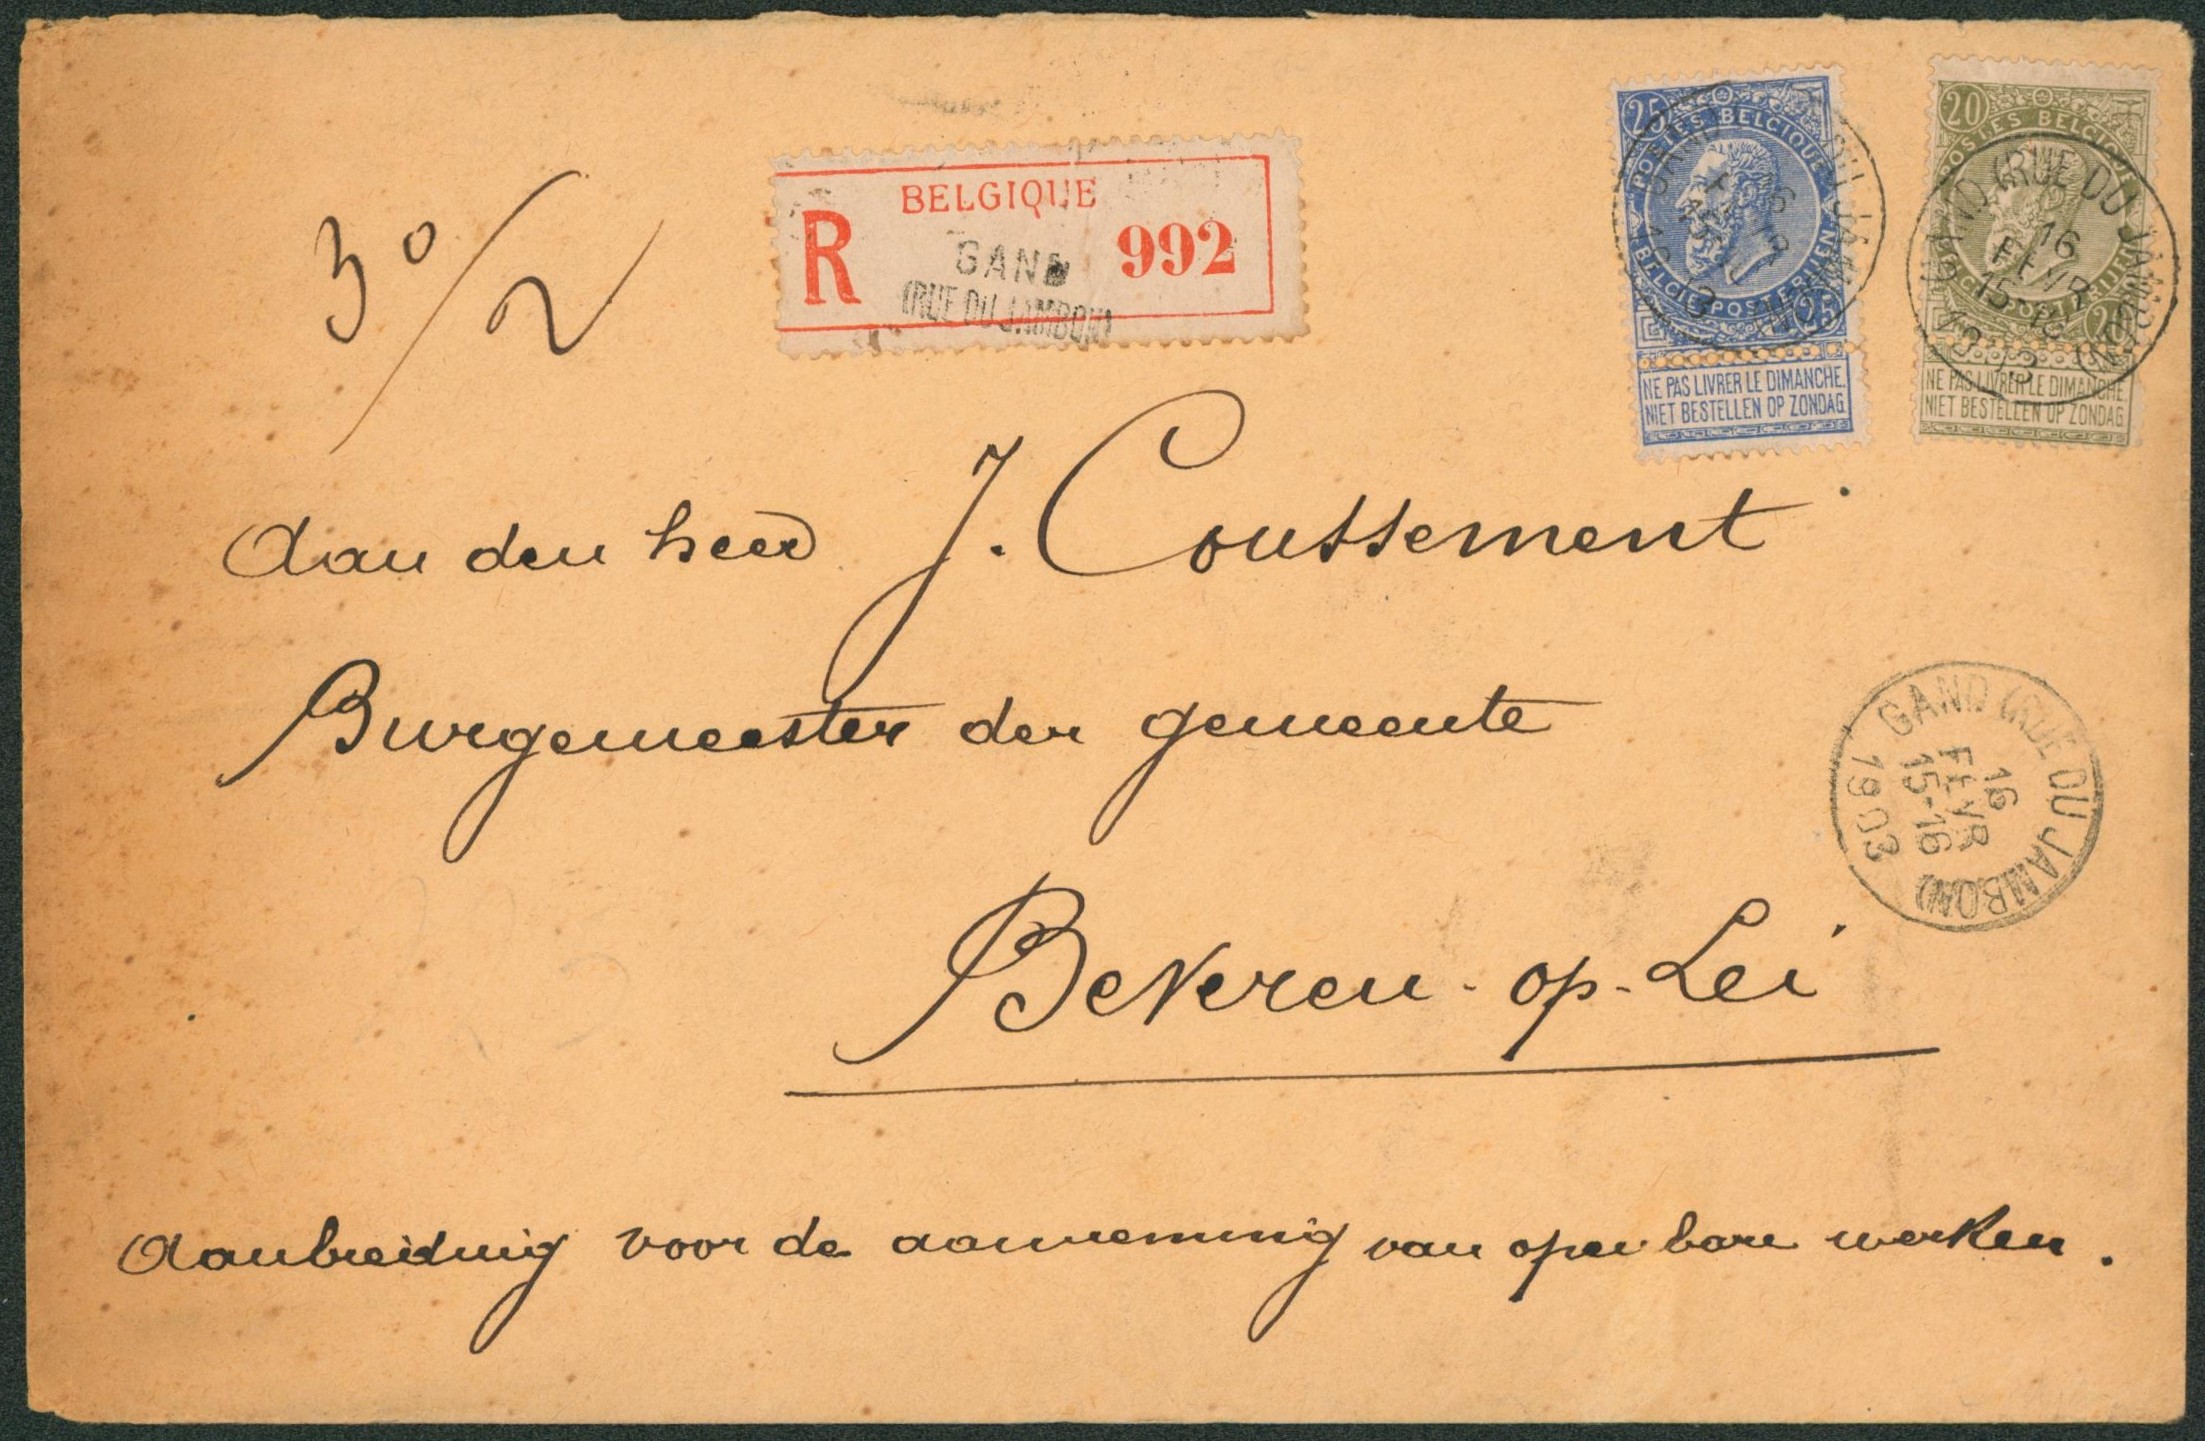 3 o/2
BELGIQUE
R
992
GAND
(RUE DU JAMBON)
25
POSTES BELGIQUE
BELGIE POSTERIJEN
25
NE PAS LIVRER LE DIMANCHE.
NIET BESTELLEN OP ZONDAG
20
POSTES BELGIQUE
BELGIE POSTERIJEN
20
NE PAS LIVRER LE DIMANCHE.
NIET BESTELLEN OP ZONDAG
GAND (RUE DU JAMBON)
16
FEVR
15-16
1903
Aan den heer J. Coussement
Burgemeester der gemeente
Beveren-op-Lei
GAND (RUE DU JAMBON)
16
FEVR
15-16
1903
Aanbieding voor de aanneming van openbare werken.